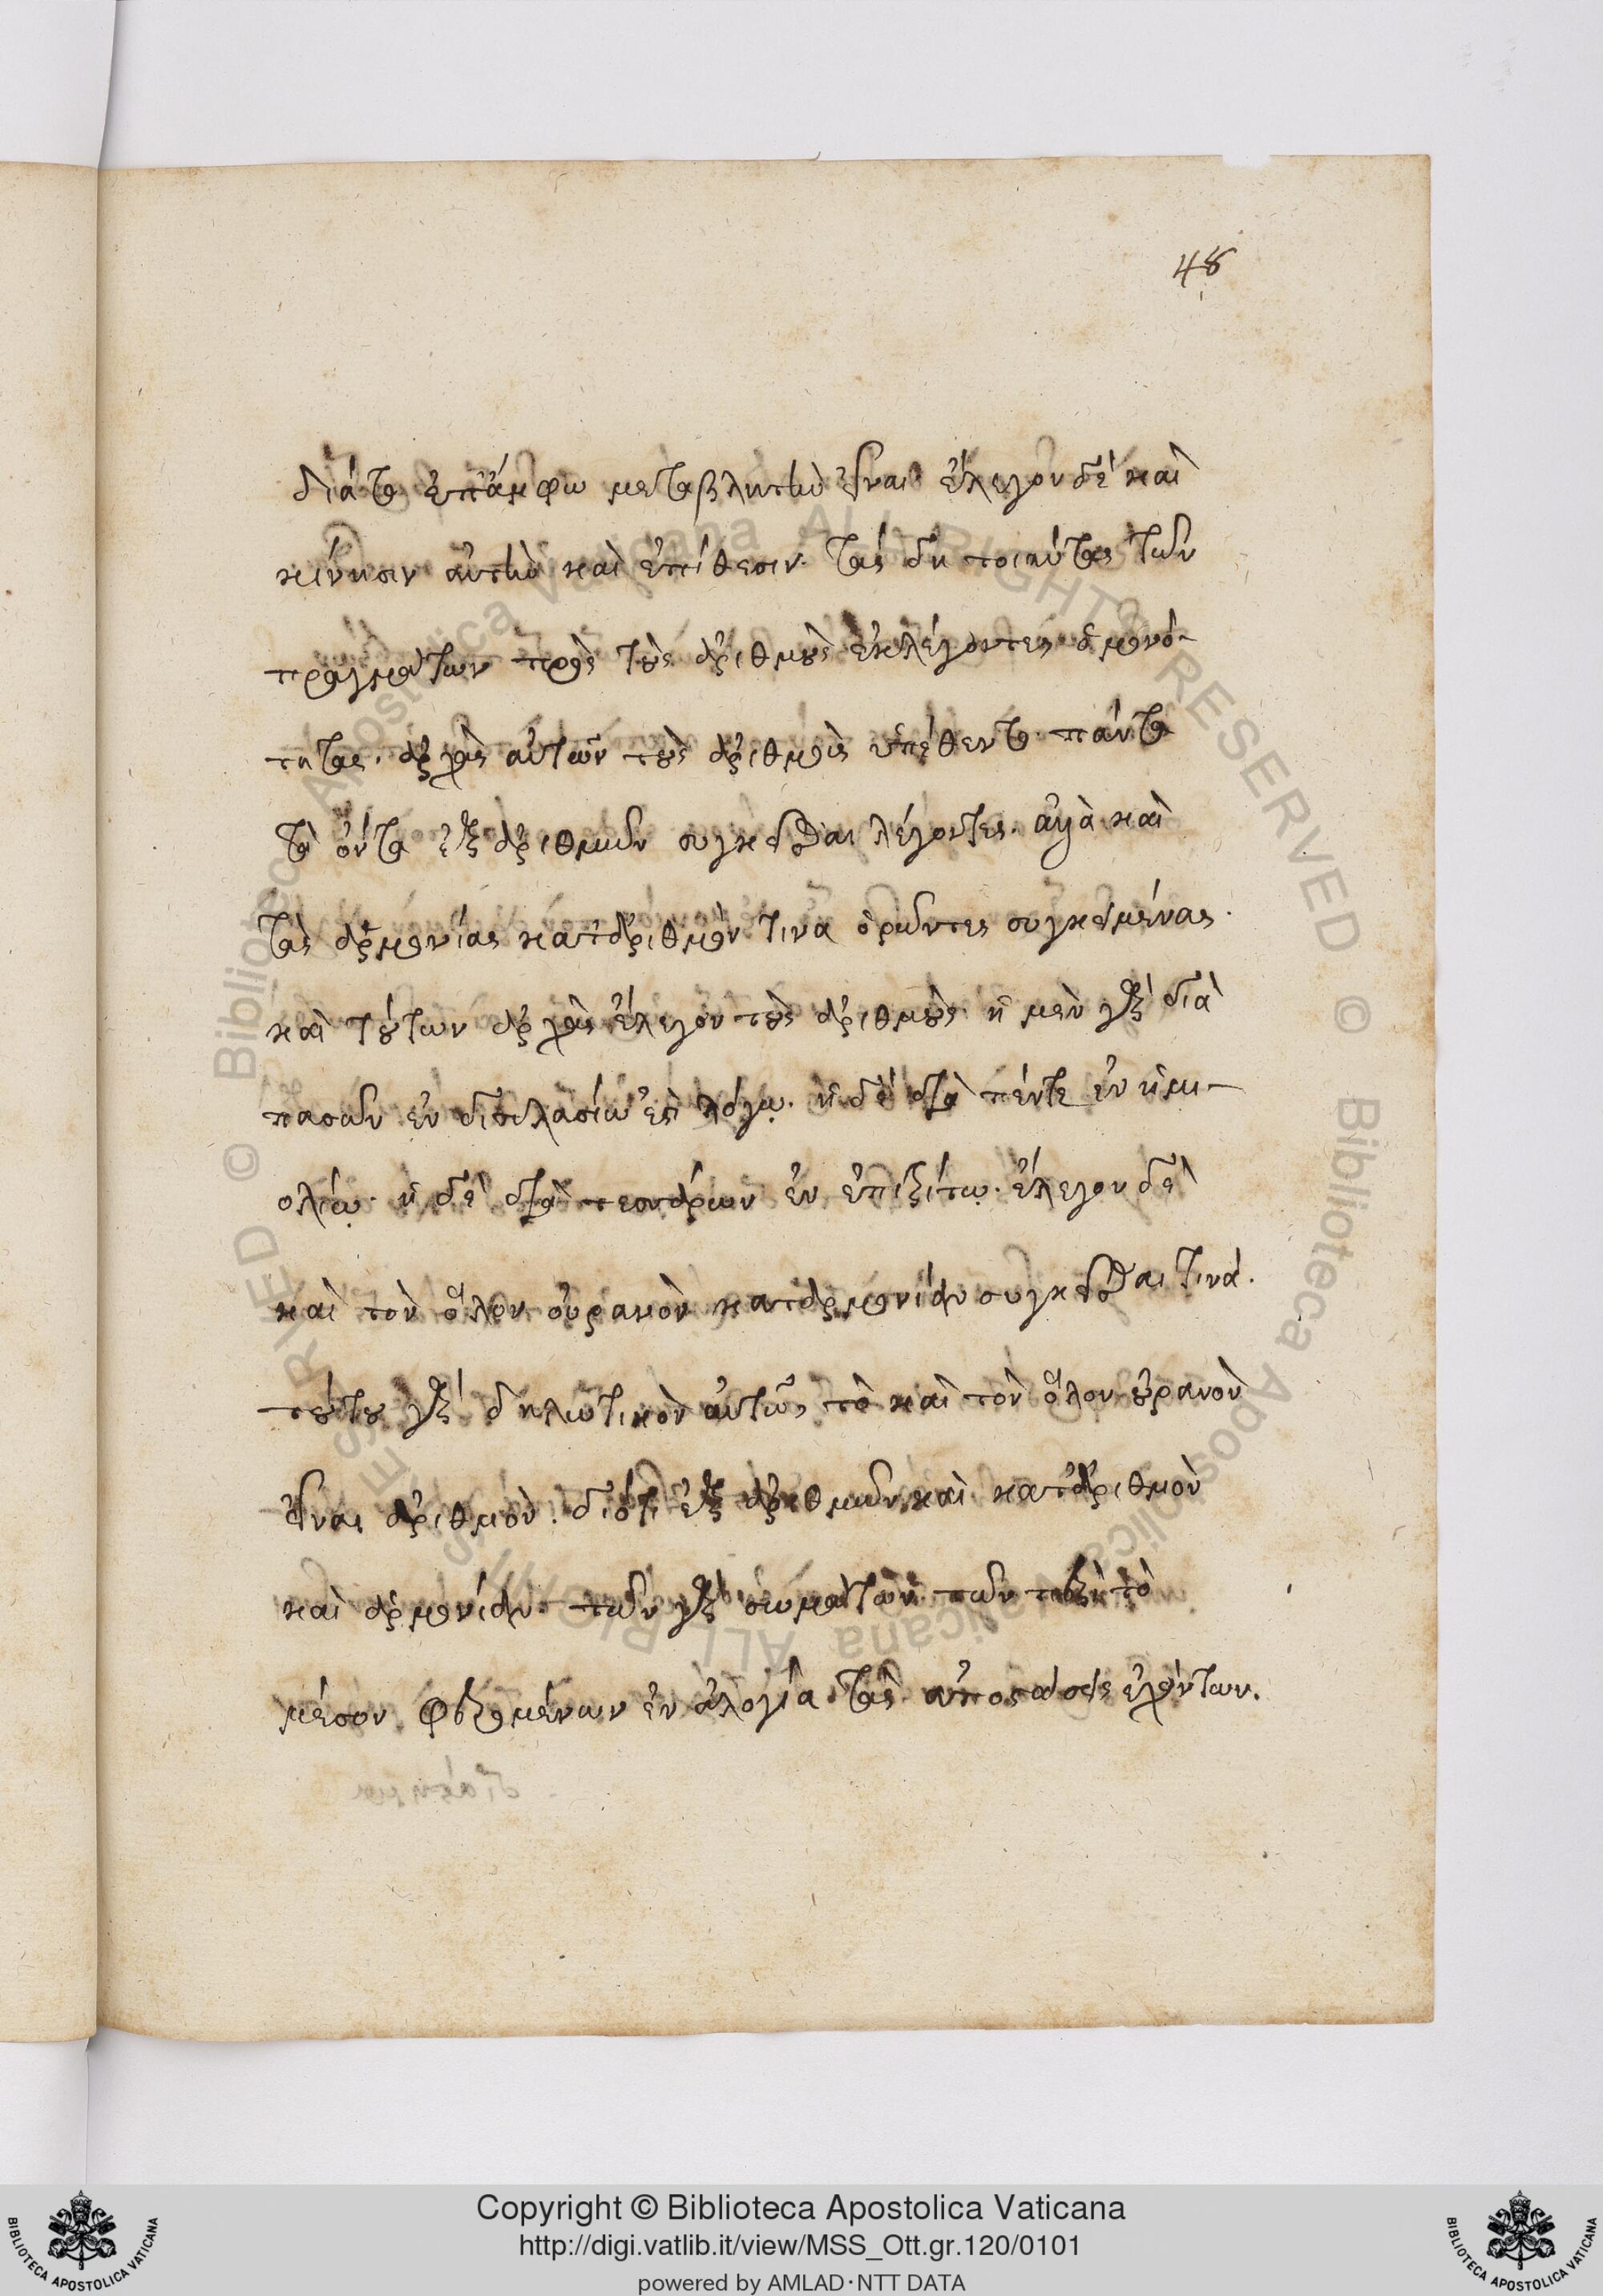 διὰ τὸ ἐπάμφω μεταβλητὴν εἶναι· ἔλεγον δὲ καὶ
κίνησιν αὐτὴν καὶ ἐπίθεσιν. τὰς δὴ τοιαύτας τῶν
πραγμάτων πρὸς τοὺς ἀριθμοὺς ἐκλέγοντες ὁμοιό-
τητας. ἀρχὰς αὐτῶν τοὺς ἀριθμοὺς ὑπέθεντο· πάντα
τὰ ὄντα ἐξ ἀριθμῶν συγκεῖσθαι λέγοντες. ἀλλὰ καὶ
τὰς ἁρμονίας κατ' ἀριθμόν τινα ὁρῶντες συγκειμένας.
καὶ τούτων ἀρχὰς ἔλεγον τοὺς ἀριθμούς. ἡ μὲν γὰρ διὰ
πασῶν ἐν διπλασίῳ ἐστὶ λόγῳ. ἡ δὲ διὰ πέντε ἐν ἡμι-
ολίῳ. ἡ δὲ διὰ τεσσάρων ἐν ἐπιτρίτῳ. ἔλεγον δὲ
καὶ τὸν ὅλον οὐρανὸν κατ' ἁρμονίαν συγκεῖσθαι τινά.
τούτου γὰρ δηλωτικὸν αὐτῶν τὸ καὶ τὸν ὅλον οὐρανὸν
εἶναι ἀριθμόν. διότι ἐξ ἀριθμῶν καὶ κατ' ἀριθμὸν
καὶ ἁρμονίαν. τῶν γὰρ σωμάτων τῶν περὶ τὸ
μέσον φερομένων ἐν ἀναλογίᾳ τὰς ἀποστάσεις ἐχόντων.
48
Copyright © Biblioteca Apostolica Vaticana
http://digi.vatlib.it/view/MSS_Ott.gr.120/0101
powered by AMLAD·NTT DATA